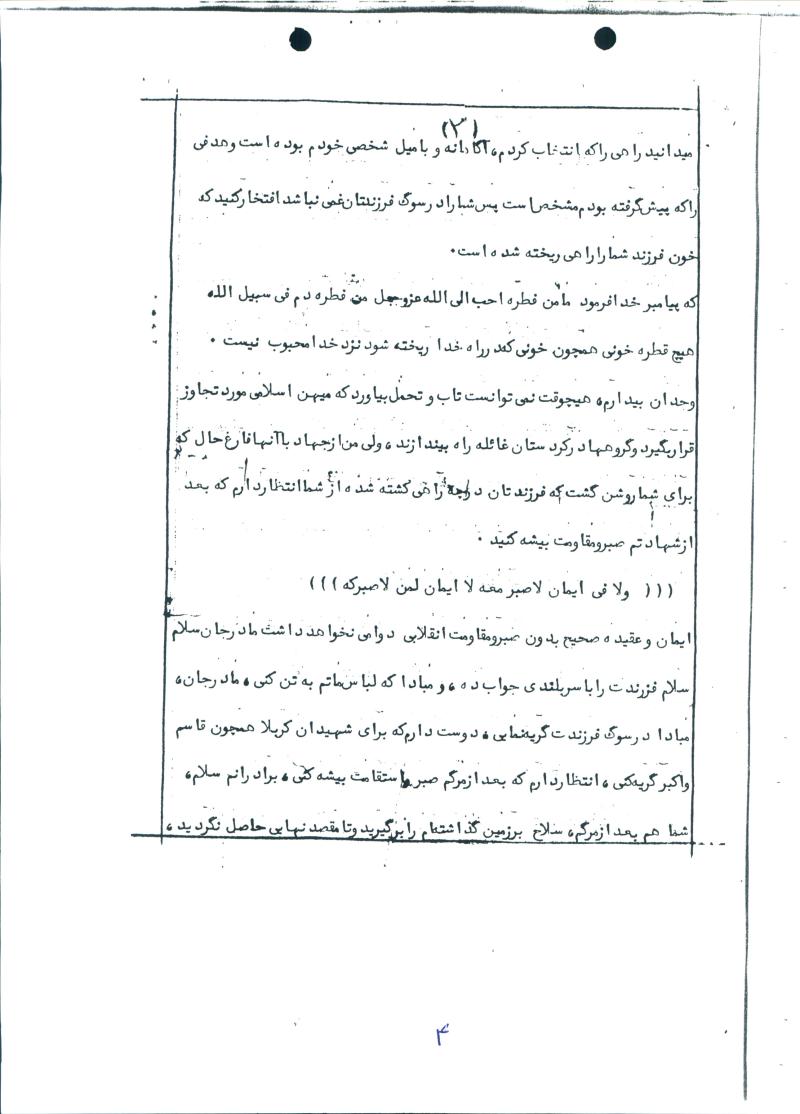 (۳)
میدانید راهی راکه انتخاب کردم، آگاهانه و بامیل شخصی خودم بوده است وهدفی
راکه پیش گرفته بودم مشخص است پس شمارا درسوگ فرزندتان غمی نباشد افتخارکنید که
خون فرزند شمارا راهی ریخته شده است.
که پیامبر خدا فرمود مامن قطره احب الی الله عزوجل من قطره دم فی سبیل الله
هیچ قطره خونی همچون خونی که در راه خدا ریخته شود نزد خدا محبوب نیست .
وجدان بیدارم، هیچوقت نمی توانست تاب و تحمل بیاورد که میهن اسلامی مورد تجاوز
قرار بگیرد وگروهها در کردستان غائله راه بیندازند ، ولی من از جهاد با آنها فارغ حال که
برای شما روشن گشت که فرزندتان در چه راهی کشته شده از شما انتظار دارم که بعد
از شهادتم صبرومقاومت بیشه کنید .
((( ولا فی ایمان لاصبر معه لا ایمان لمن لاصبرکه )))
ایمان و عقیده صحیح بدون صبرومقاومت انقلابی دوامی نخواهد داشت مادرجان سلام
سلام فرزندت را با سربلندی جواب ده ، و مبادا که لباس ماتم به تن کنی ، مادرجان،
مبادا درسوگ فرزندت گریه نمایی ، دوست دارم که برای شهیدان کربلا همچون قاسم
واکبر گریه کنی ، انتظار دارم که بعد از مرگم صبر و استقامت بیشه کنی ، برادرانم سلام،
شما هم بعد از مرگم، سلاح برزمین گذاشته ام را برگیرید و تا مقصد نهایی حاصل نگردید ،
۴